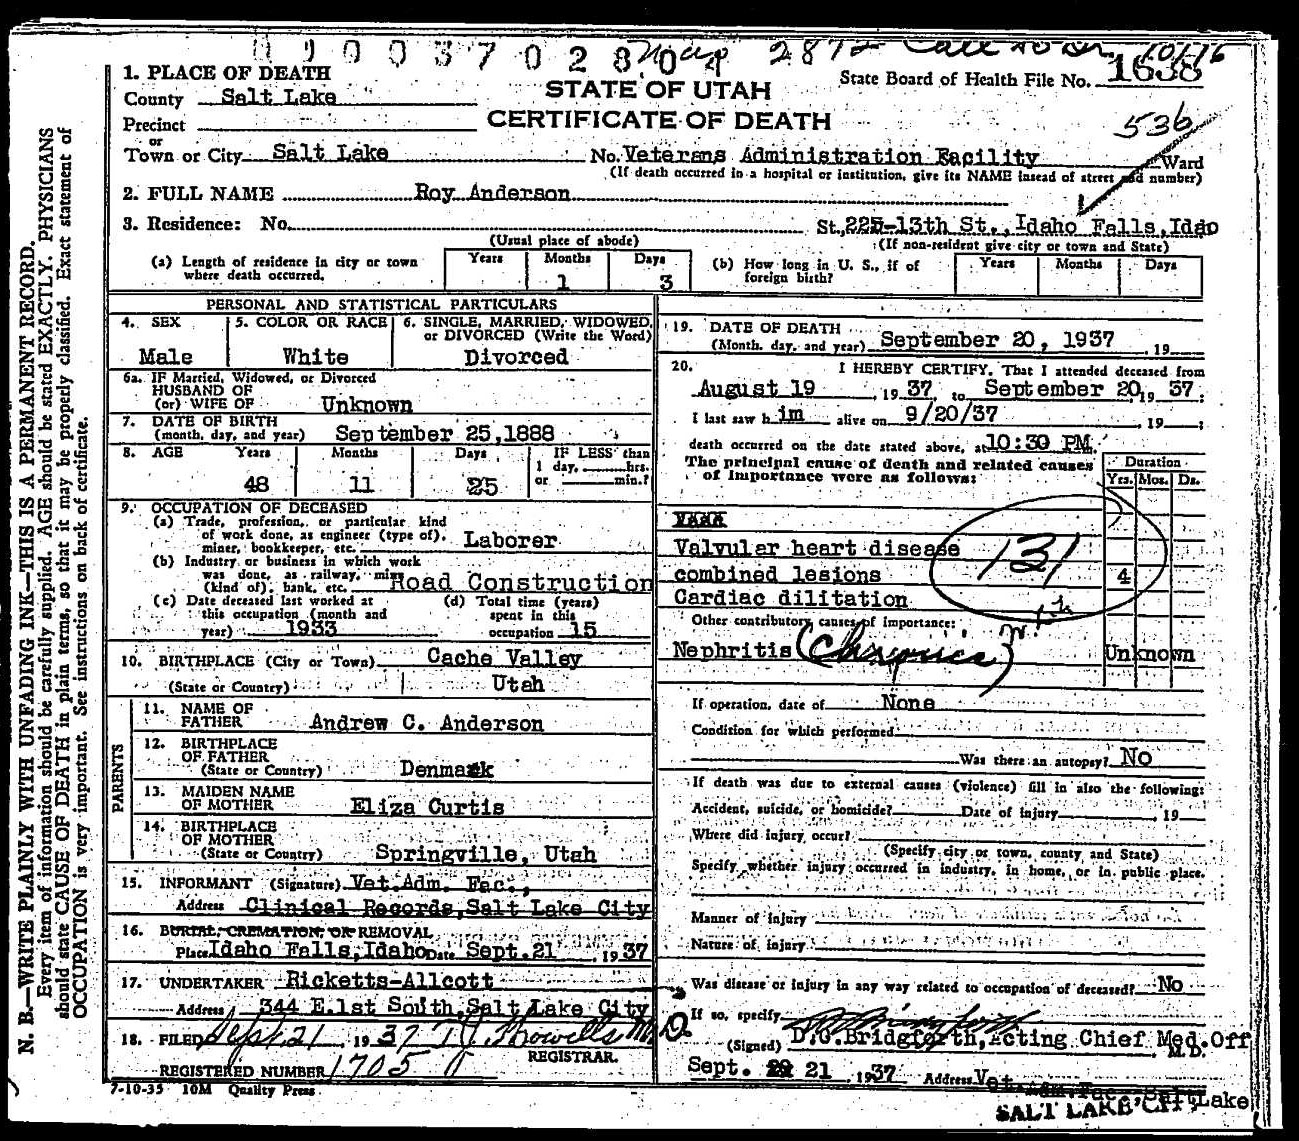 0 0 0 0 3 7 0 2 8 0 4 2872
1. PLACE OF DEATH
State Board of Health File No. 1638
County Salt Lake
STATE OF UTAH
CERTIFICATE OF DEATH
536
Precinct
or
Town or City Salt Lake No. Veterans Administration Facility Ward
(If death occurred in a hospital or institution, give its NAME insead of street and number)
2. FULL NAME Roy Anderson
3. Residence: No. St., 225-13th St., Idaho Falls, Idao
(Usual place of abode) (If non-resident give city or town and State)
(a) Length of residence in city or town where death occurred. Years Months 1 Days 3
(b) How long in U. S., if of foreign birth? Years Months Days
PERSONAL AND STATISTICAL PARTICULARS
4. SEX Male
5. COLOR OR RACE White
6. SINGLE, MARRIED, WIDOWED, or DIVORCED (Write the Word) Divorced
6a. IF Married, Widowed, or Divorced
HUSBAND OF
(or) WIFE OF Unknown
7. DATE OF BIRTH
(month, day, and year) September 25,1888
8. AGE Years 48 Months 11 Days 25 IF LESS than 1 day, hrs. or min.?
9. OCCUPATION OF DECEASED
(a) Trade, profession, or particular kind
of work done, as engineer (type of),
miner, bookkeeper, etc. Laborer
(b) Industry or business in which work
was done, as railway, mine
(kind of), bank, etc. Road Construction
(c) Date deceased last worked at
this occupation (month and
year) 1933
(d) Total time (years)
spent in this
occupation 15
10. BIRTHPLACE (City or Town) Cache Valley
(State or Country) Utah
PARENTS
11. NAME OF
FATHER Andrew C. Anderson
12. BIRTHPLACE
OF FATHER
(State or Country) Denmark
13. MAIDEN NAME
OF MOTHER Eliza Curtis
14. BIRTHPLACE
OF MOTHER
(State or Country) Springville, Utah
15. INFORMANT (Signature) Vet.Adm. Fac.,
Address Clinical Records, Salt Lake City
16. BURIAL, CREMATION, OR REMOVAL
Place Idaho Falls, Idaho Date Sept.21 , 1937
17. UNDERTAKER Ricketts-Allcott
Address 344 E.1st South, Salt Lake City
18. FILED Sept. 21 1937 T.J. Howells M.D.
REGISTRAR.
REGISTERED NUMBER 1705
7-10-35 10M Quality Press
19. DATE OF DEATH
(Month, day, and year) September 20, 1937 , 19
20. I HEREBY CERTIFY, That I attended deceased from
August 19 , 1937 to September 20, 1937;
I last saw h im alive on 9/20/37 , 19 ;
death occurred on the date stated above, at 10:30 PM.
The principal cause of death and related causes
of importance were as follows:
Duration
Yrs. Mos. Ds.
Valvular heart disease
combined lesions 4
Cardiac dilitation
131
Other contributory causes of importance:
Nephritis (Chronic) Unknown
If operation, date of None
Condition for which performed
Was there an autopsy? No
If death was due to external causes (violence) fill in also the following:
Accident, suicide, or homicide? Date of injury , 19
Where did injury occur?
(Specify city or town, county and State)
Specify whether injury occurred in industry, in home, or in public place.
Manner of injury
Nature of injury
Was disease or injury in any way related to occupation of deceased? No
If so, specify
(Signed) D.G.Bridgforth, Acting Chief Med.Off
M.D.
Sept. 21 , 1937 Address Vet.Adm.Fac., Salt Lake
SALT LAKE CITY
N. B.—WRITE PLAINLY WITH UNFADING INK—THIS IS A PERMANENT RECORD.
Every item of information should be carefully supplied. AGE should be stated EXACTLY. PHYSICIANS
should state CAUSE OF DEATH in plain terms, so that it may be properly classified. Exact statement of
OCCUPATION is very important. See instructions on back of certificate.